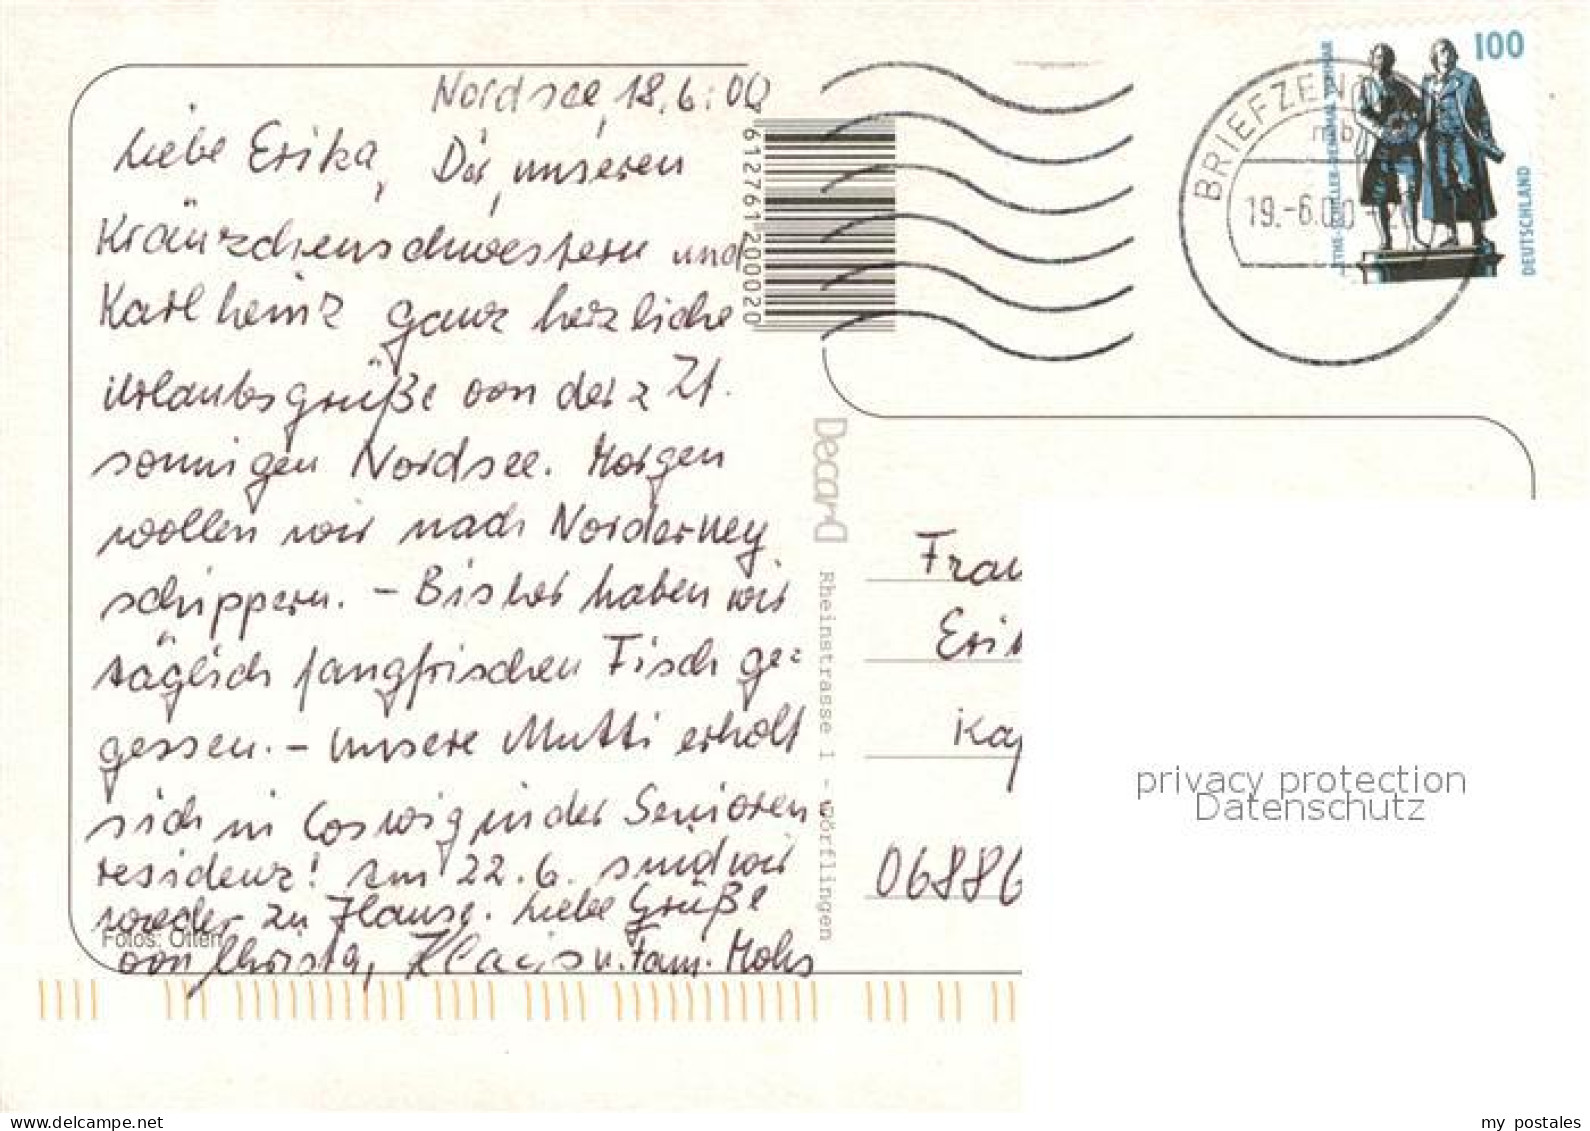 Nordsee, 18.6.00
Liebe Erika, Dir, unseren
Kränzchenschwestern und
Karlheinz ganz herzliche
Urlaubsgrüße von der z Zt.
sonnigen Nordsee. Morgen
wollen wir nach Norderney
schippern. – Bisher haben wir
täglich fangfrischen Fisch ge=
gessen. – Unsere Mutti erholt
sich in Coswig in der Senioren
residenz! Am 22.6. sind wir
wieder zu Hause. Liebe Grüße
von Christa, Klaus u. Fam. Mohs
Fotos: Olten
6127612000020
Decard
Rheinstrasse 1 - Dörflingen
BRIEFZENT
19.-6.00
100
DEUTSCHLAND
Frau
Eri
Kap
06886
privacy protection
Datenschutz
my postales